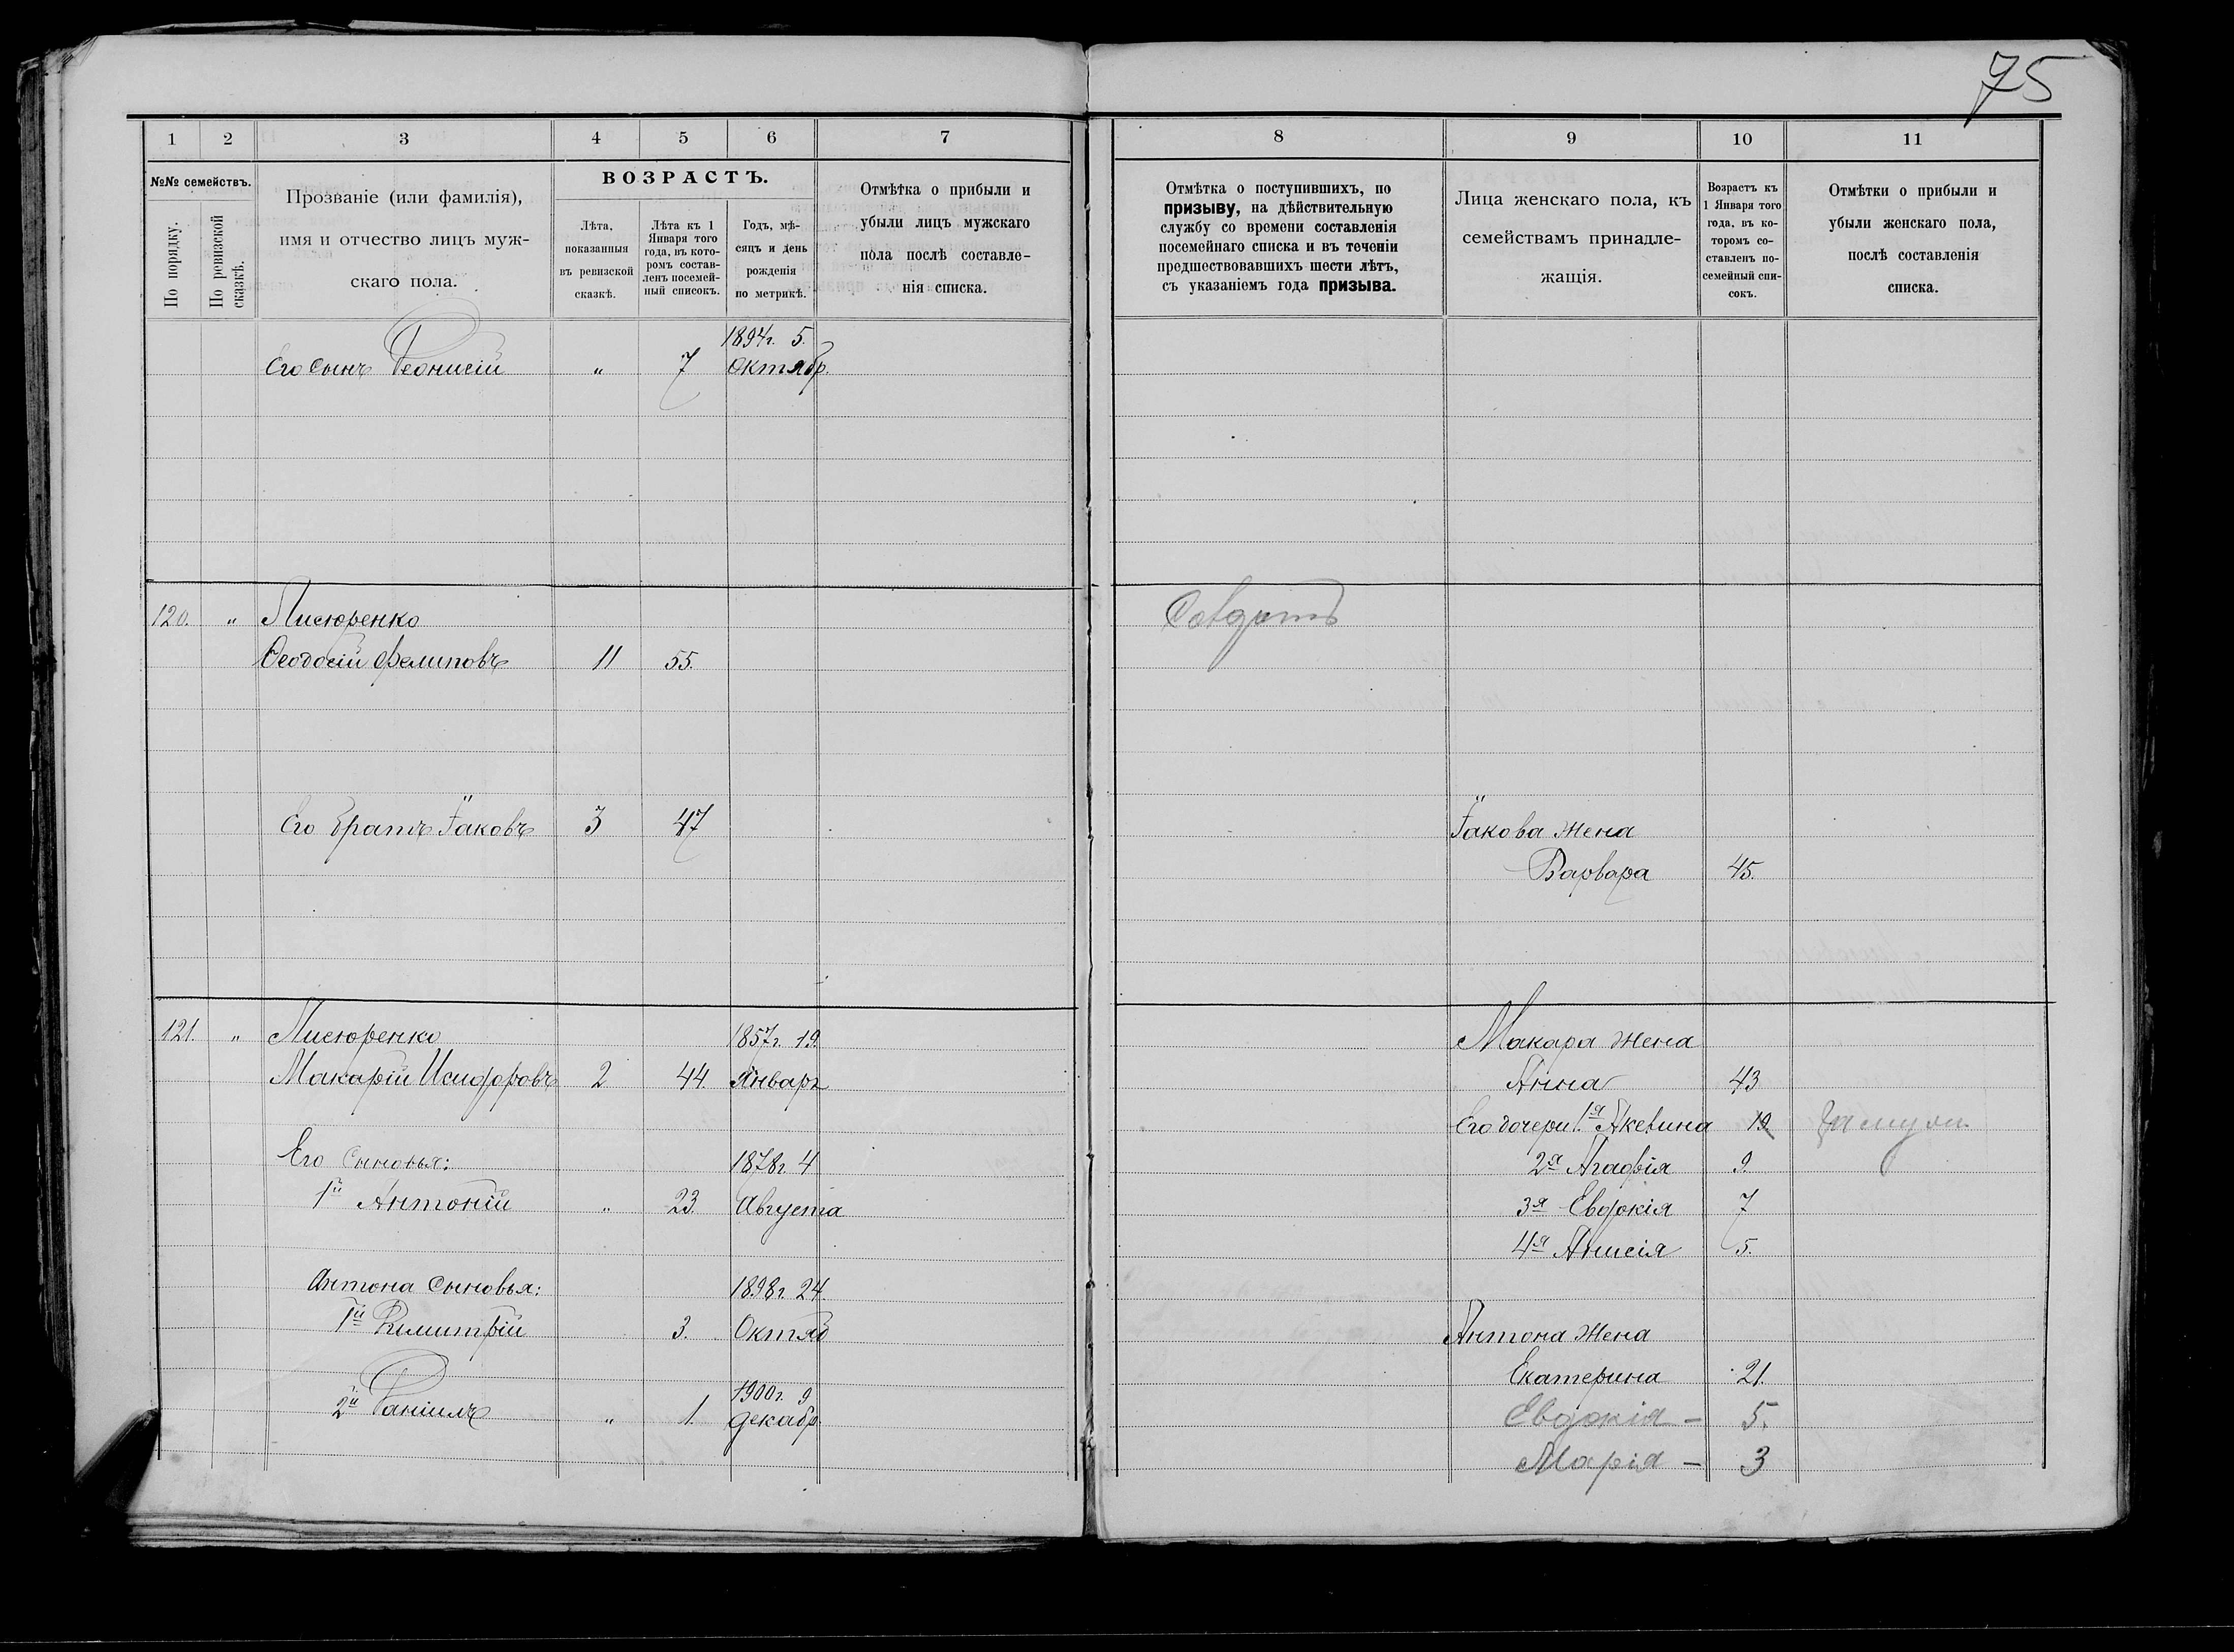 75
1 2 3 4 5 6 7
№№ семействъ.
По порядку.
По ревизской сказкѣ.
Прозваніе (или фамилія),
имя и отчество лицъ муж-
скаго пола.
ВОЗРАСТЪ.
Лѣта,
показанныя
въ ревизской
сказкѣ.
Лѣта къ 1
Января того
года, въ кото-
ромъ состав-
ленъ посемей-
ный списокъ.
Годъ, мѣ-
сяцъ и день
рожденія
по метрикѣ.
Отмѣтка о прибыли и
убыли лицъ мужскаго
пола послѣ составле-
нія списка.
1894г. 5.
Его сынъ Деонисій " 7 Октябр.
120. " Лисюренко
Ѳеодосій Филиповъ 11 55.
Его братъ Іаковъ 3 47
121. " Лисюренко 1857г. 19.
Макарій Исидоровъ 2 44. Январь
Его сыновья: 1878г. 4
1й Антоній " 23. Августа
Антона сыновья: 1898г. 24.
1й Димитрій 3. Октяб
1900г. 9
2й Даніилъ " 1. декабр
8 9 10 11
Отмѣтка о поступившихъ, по
призыву, на дѣйствительную
службу со времени составленія
посемейнаго списка и въ теченіи
предшествовавшихъ шести лѣтъ,
съ указаніемъ года призыва.
Лица женскаго пола, къ
семействамъ принадле-
жащія.
Возрастъ къ
1 Января того
года, въ ко-
торомъ со-
ставленъ по-
семейный спи-
сокъ.
Отмѣтки о прибыли и
убыли женскаго пола,
послѣ составленія
списка.
Іакова жена
Варвара 45.
Макара жена
Анна 43
Его дочери: 1я 19
2я Агафія 9.
3я Евдокія 7
4я Анисія 5.
Антона жена
Екатерина 21.
Евдокія – 5.
Марія – 3